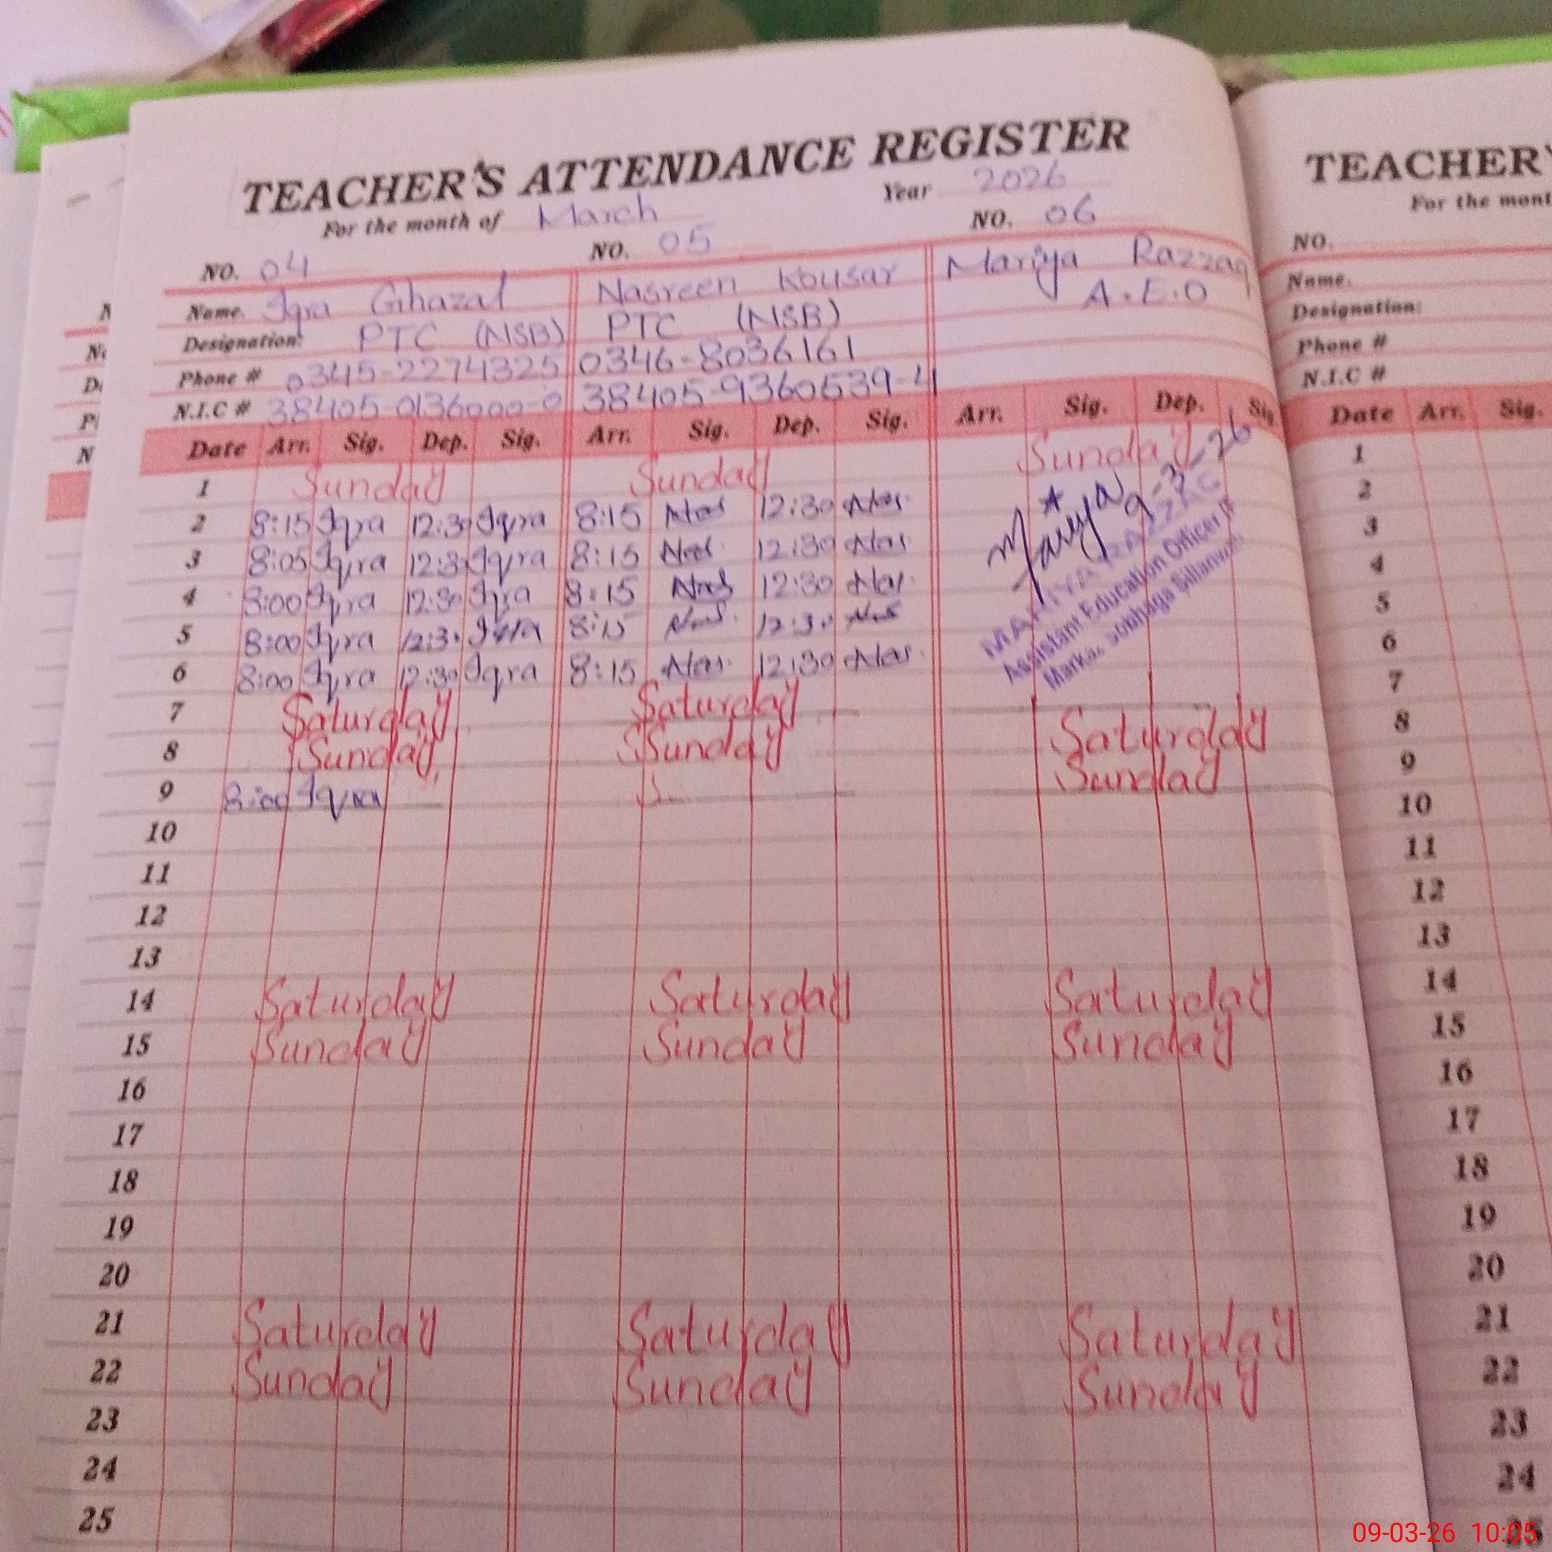 TEACHER'S ATTENDANCE REGISTER
For the month of March Year 2026
NO. 04 NO. 05 NO. 06
Name. Iqra Ghazal Nasreen Kousar Mariya Razzaq
Designation: PTC (NSB) PTC (NSB) A.E.O
Phone # 0345-2274325 0346-8036161
N.I.C # 38405-0136000-0 38405-9360539-4
Date Arr. Sig. Dep. Sig. Arr. Sig. Dep. Sig. Arr. Sig. Dep. Sig
1 Sunday Sunday Sunday
2 8:15 Iqra 12:30 Iqra 8:15 Nas 12:30 Nas.
3 8:05 Iqra 12:30 Iqra 8:15 Nas. 12:30 Nas.
4 8:00 Iqra 12:30 Iqra 8:15 Nas 12:30 Nas.
5 8:00 Iqra 12:30 Iqra 8:15 Nas. 12:30 Nas
6 8:00 Iqra 12:30 Iqra 8:15 Nas. 12:30 Nas.
Mariya 9-3-26
MARIYA RAZZAQ
Assistant Education Officer
Markaz Sobhaga Sillanwali
7 Saturday Saturday Saturday
8 Sunday Sunday Sunday
9 8:00 Iqra
10
11
12
13
14 Saturday Saturday Saturday
15 Sunday Sunday Sunday
16
17
18
19
20
21 Saturday Saturday Saturday
22 Sunday Sunday Sunday
23
24
25
TEACHER'
For the mont
NO.
Name.
Designation:
Phone #
N.I.C #
Date Arr. Sig.
1
2
3
4
5
6
7
8
9
10
11
12
13
14
15
16
17
18
19
20
21
22
23
24
25
09-03-26 10:05